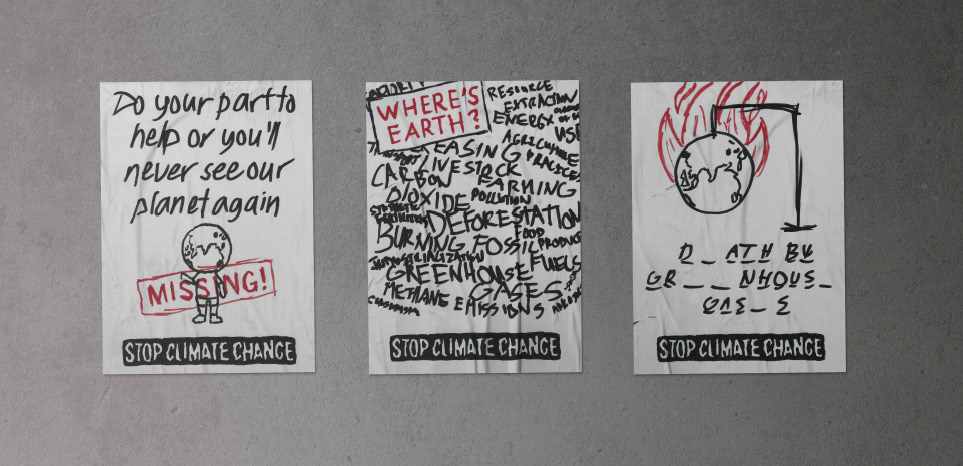 Do your part to
help or you'll
never see our
planet again
MISSING!
STOP CLIMATE CHANGE
WHERE'S
EARTH?
RESOURCE
EXTRACTION
ENERGY
USE
AGRICULTURE
PRACTICES
INCREASING
LIVESTOCK
FARMING
CARBON
DIOXIDE
POLLUTION
SYNTHETIC
FERTILIZERS
DEFORESTATION
FOOD
PRODUCE
BURNING FOSSIL
FUELS
INDUSTRIALIZATION
GREENHOUSE
GASES
METHANE EMISSIONS
STOP CLIMATE CHANGE
D _ ATH BY
GR _ _ NHOUS _
GAS _ S
STOP CLIMATE CHANGE